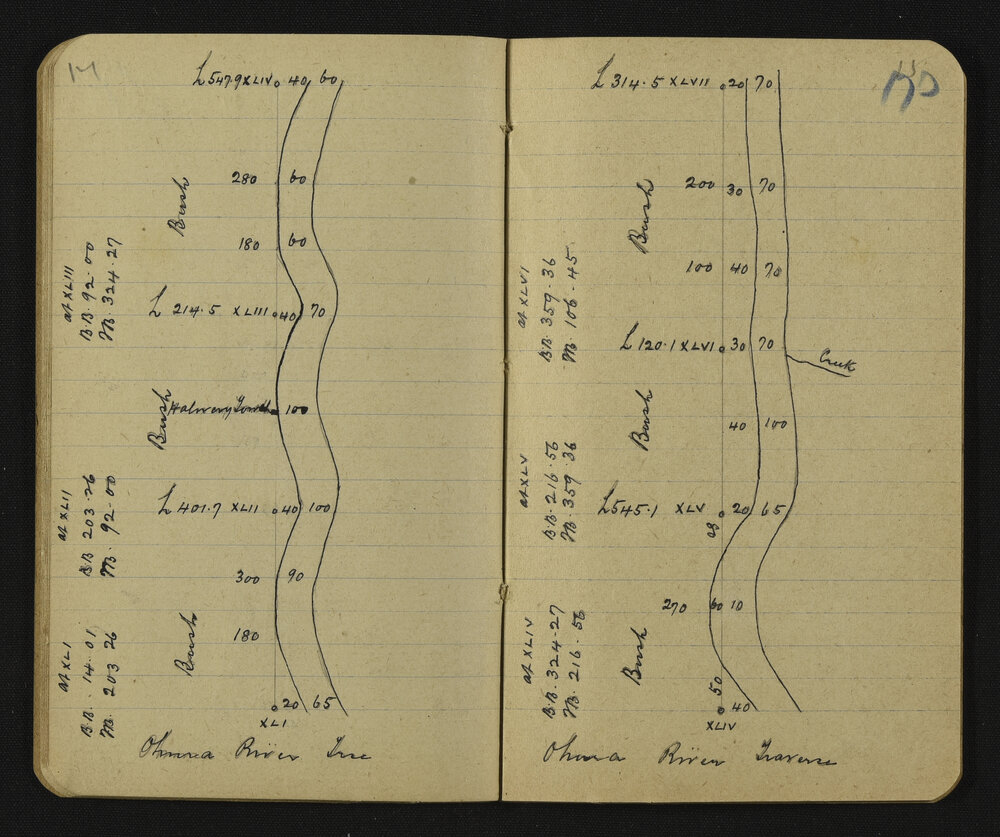 14
L 547.9 XLIV 40 60
280 60
Bush
180 60
at XLIII
B.B. 92.00
M. 324.27
L 214.5 XLIII 40 70
Bush
100
at XLII
B.B. 203.26
M. 92.00
L 401.7 XLII 40 100
300 90
180
Bush
at XLI
B.B. 14.01
M. 203 26
20 65
XLI
Ohura River Trse
15
L 314.5 XLVII 20 70
200 30 70
Bush
100 40 70
at XLVI
B.B. 359.36
M. 106.45
L 120.1 XLVI 30 70
Creek
Bush
40 100
at XLV
B.B. 216.56
M. 359.36
L 545.1 XLV 20 65
270 60 10
Bush
at XLIV
B.B. 324.27
M. 216.56
50
40
XLIV
Ohura River Traverse